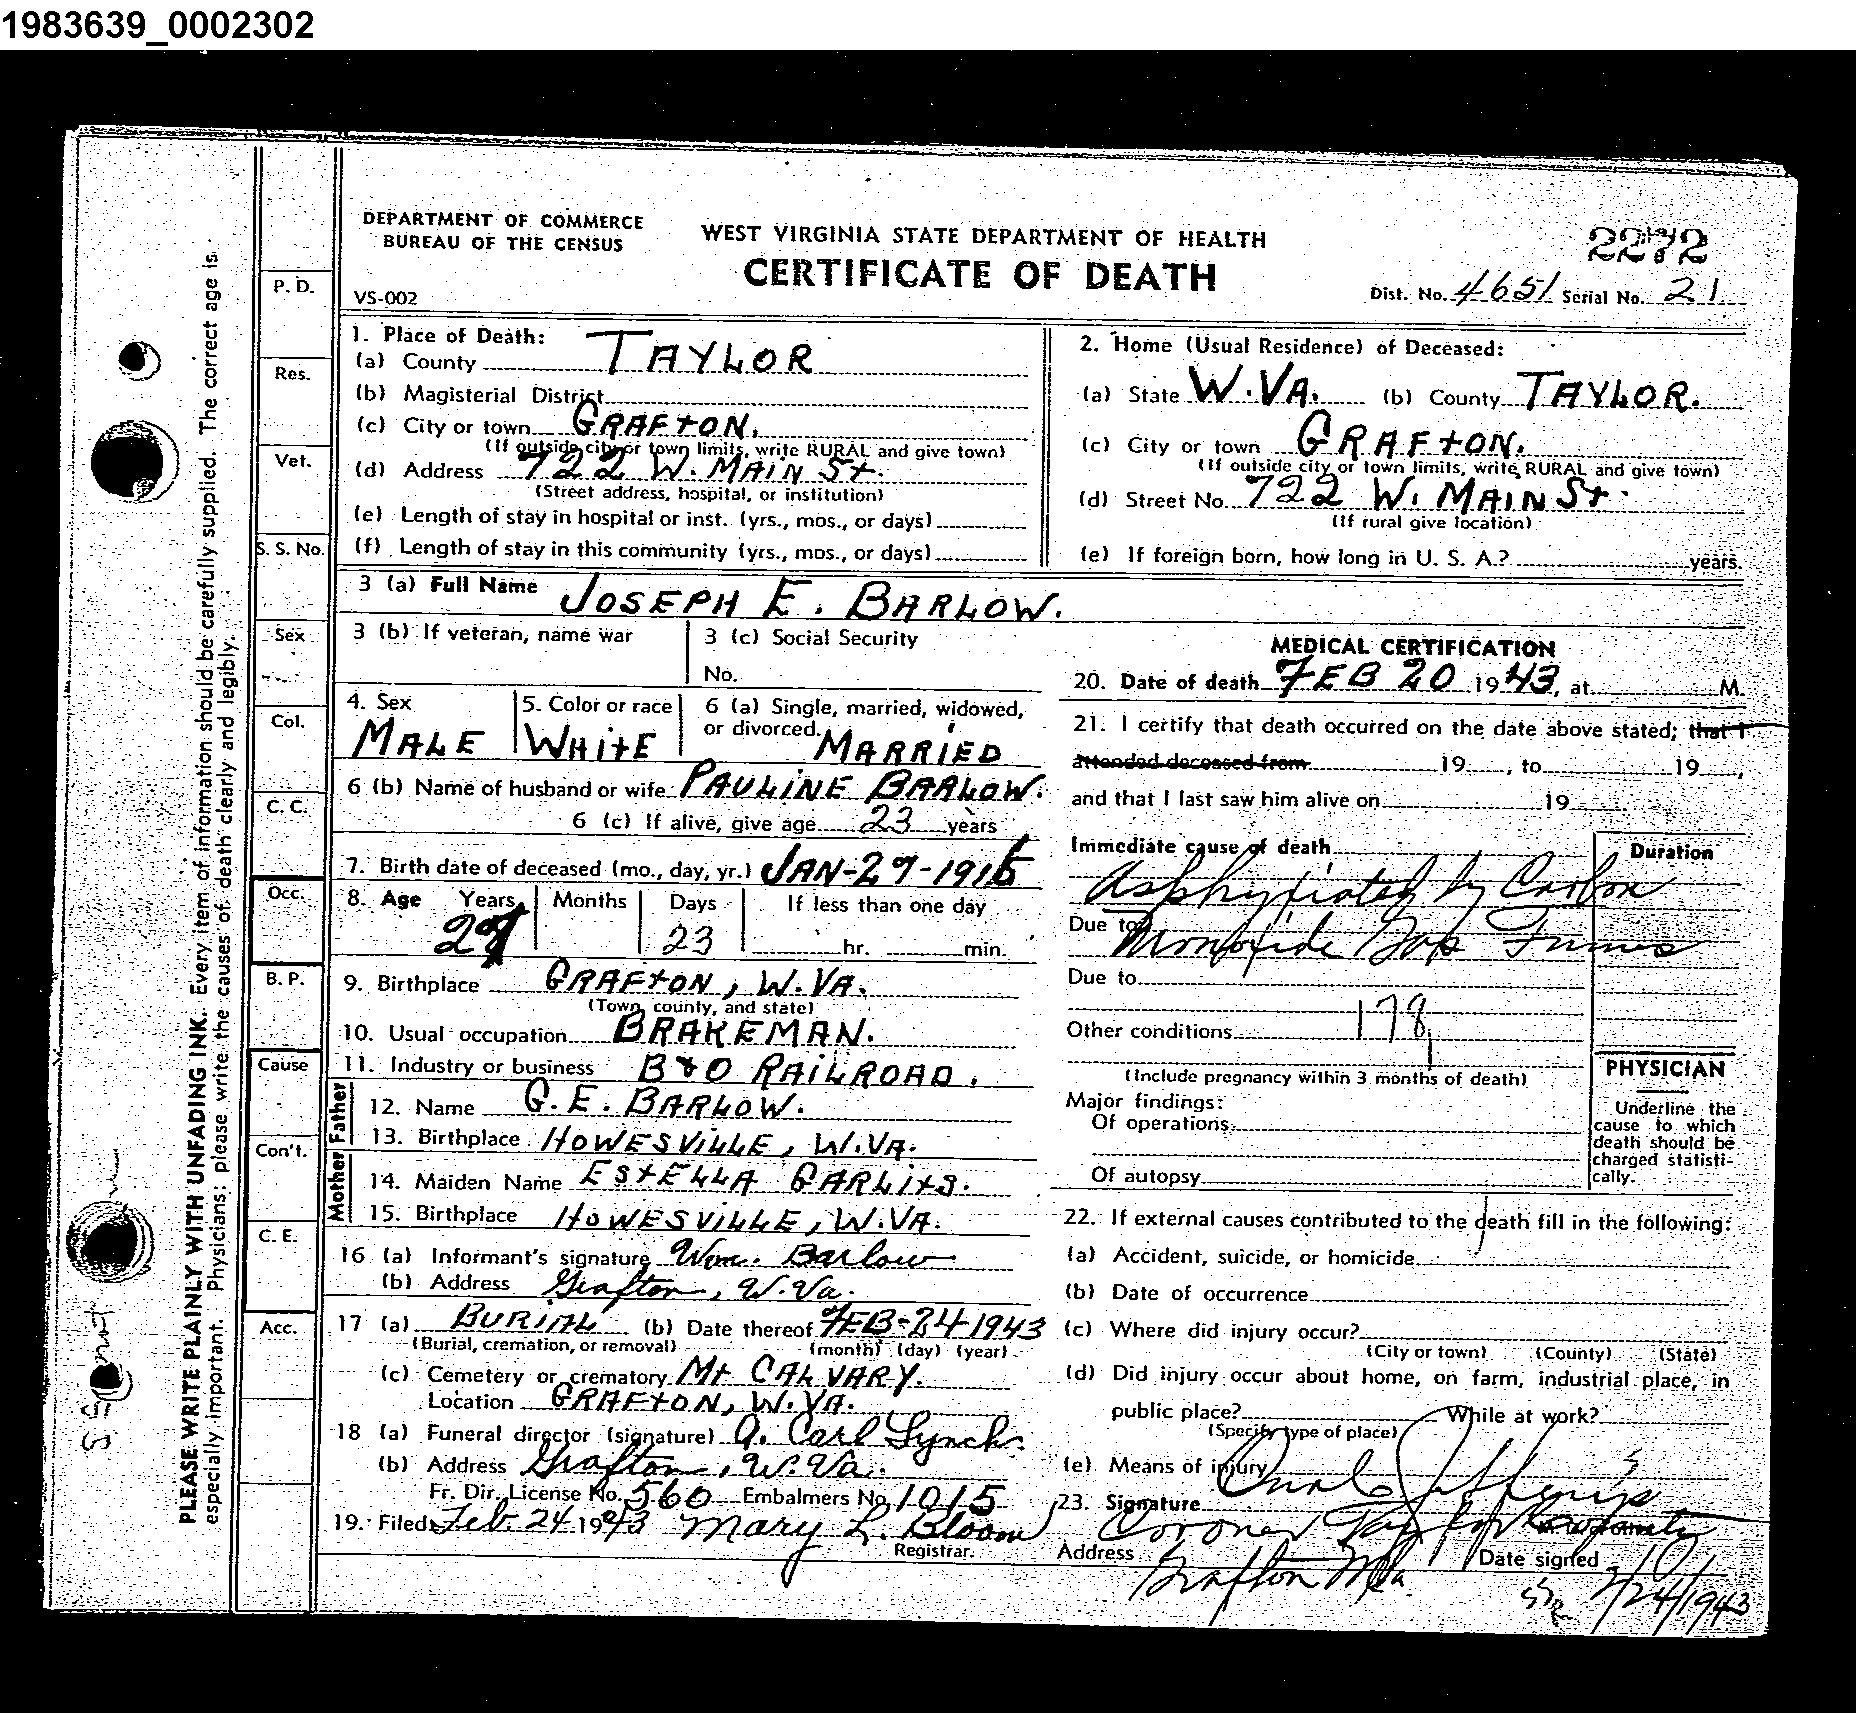 1983639_0002302
DEPARTMENT OF COMMERCE
BUREAU OF THE CENSUS
VS-002
WEST VIRGINIA STATE DEPARTMENT OF HEALTH
CERTIFICATE OF DEATH
Dist. No. 4651 Serial No. 21
1. Place of Death:
(a) County TAYLOR
(b) Magisterial District
(c) City or town GRAFTON.
(If outside city or town limits, write RURAL and give town)
(d) Address 722 W. MAIN St.
(Street address, hospital, or institution)
(e) Length of stay in hospital or inst. (yrs., mos., or days)
(f) Length of stay in this community (yrs., mos., or days)
2. Home (Usual Residence) of Deceased:
(a) State W. VA. (b) County TAYLOR.
(c) City or town GRAFTON.
(If outside city or town limits, write RURAL and give town)
(d) Street No. 722 W. MAIN St.
(If rural give location)
(e) If foreign born, how long in U. S. A.? years.
3 (a) Full Name JOSEPH E. BARLOW.
3 (b) If veteran, name war
3 (c) Social Security
No.
4. Sex
MALE
5. Color or race
WHITE
6 (a) Single, married, widowed,
or divorced. MARRIED
6 (b) Name of husband or wife PAULINE BARLOW.
6 (c) If alive, give age 23 years
7. Birth date of deceased (mo., day, yr.) JAN-29-1915
8. Age Years Months Days If less than one day
23 hr. min.
9. Birthplace GRAFTON, W. VA.
(Town, county, and state)
10. Usual occupation BRAKEMAN.
11. Industry or business B & O RAILROAD.
Father
12. Name G. E. BARLOW.
13. Birthplace HOWESVILLE, W. VA.
Mother
14. Maiden Name ESTELLA GARLITS.
15. Birthplace HOWESVILLE, W. VA.
16 (a) Informant's signature Wm. Barlow
(b) Address Grafton, W. Va.
17 (a) BURIAL (b) Date thereof FEB-24 1943
(Burial, cremation, or removal) (month) (day) (year)
(c) Cemetery or crematory Mt CALVARY.
Location GRAFTON, W. VA.
18 (a) Funeral director (signature) A. Carl Lynch.
(b) Address Grafton, W. Va.
Fr. Dir. License No. 560 Embalmers No. 1015
19. Filed: Feb. 24 1943 Mary L. Bloom
Registrar.
MEDICAL CERTIFICATION
20. Date of death FEB 20 1943, at M.
21. I certify that death occurred on the date above stated; that I
attended deceased from 19 , to 19 ,
and that I last saw him alive on 19
Immediate cause of death
Duration
Asphyxiated by Carbon
Due to Monoxide Gas Fumes
Due to
Other conditions 178
(Include pregnancy within 3 months of death)
Major findings:
Of operations
Of autopsy
PHYSICIAN
Underline the
cause to which
death should be
charged statisti-
cally.
22. If external causes contributed to the death fill in the following:
(a) Accident, suicide, or homicide
(b) Date of occurrence
(c) Where did injury occur?
(City or town) (County) (State)
(d) Did injury occur about home, on farm, industrial place, in
public place? While at work?
(Specify type of place)
(e) Means of injury
23. Signature
Coroner Taylor County
Address Grafton Date signed
2/24/1943
P. D.
Res.
Vet.
S. S. No.
Sex
Col.
C. C.
Occ.
B. P.
Cause
Con't.
C. E.
Acc.
PLEASE WRITE PLAINLY WITH UNFADING INK. Every item of information should be carefully supplied. The correct age is
especially important. Physicians: please write the causes of death clearly and legibly.